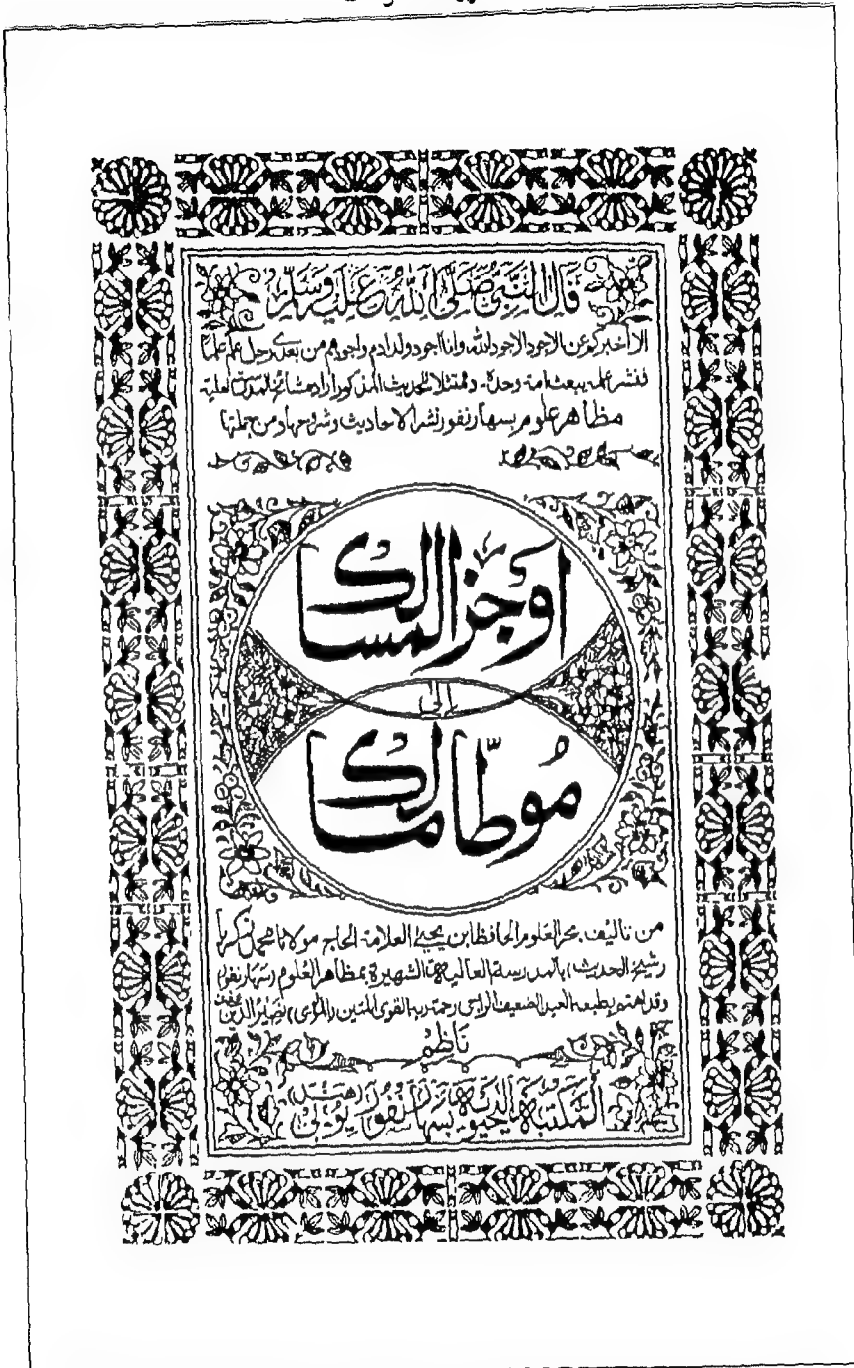 قال النبي صلى الله عليه وسلم
الا اخبركم عن الاجود الاجود الله وانا اجود ولد ادم واجودهم من بعدي رجل علم علما
فنشر علمه يبعث امة وحده، وممتثلا للحديث المذكور اراد مشائخ المدرسة العلية
مظاهر علوم بسهارنفور نشر الاحاديث وشروحها ومن جملتها
اوجز المسالك
الى
موطا مالك
من تاليف بحر العلوم الحافظ ابن يحيى العلامة الحاج مولانا محمد زكريا
(شيخ الحديث) بالمدرسة العالية الشهيرة بمظاهر العلوم (سهارنفور)
وقد اهتم بطبعه العبد الضعيف الراجي رحمة ربه القوى المتين (المولوى) نصير الدين
ناظم
المكتبة اليحيوية سهارنفور (هند) يوپي